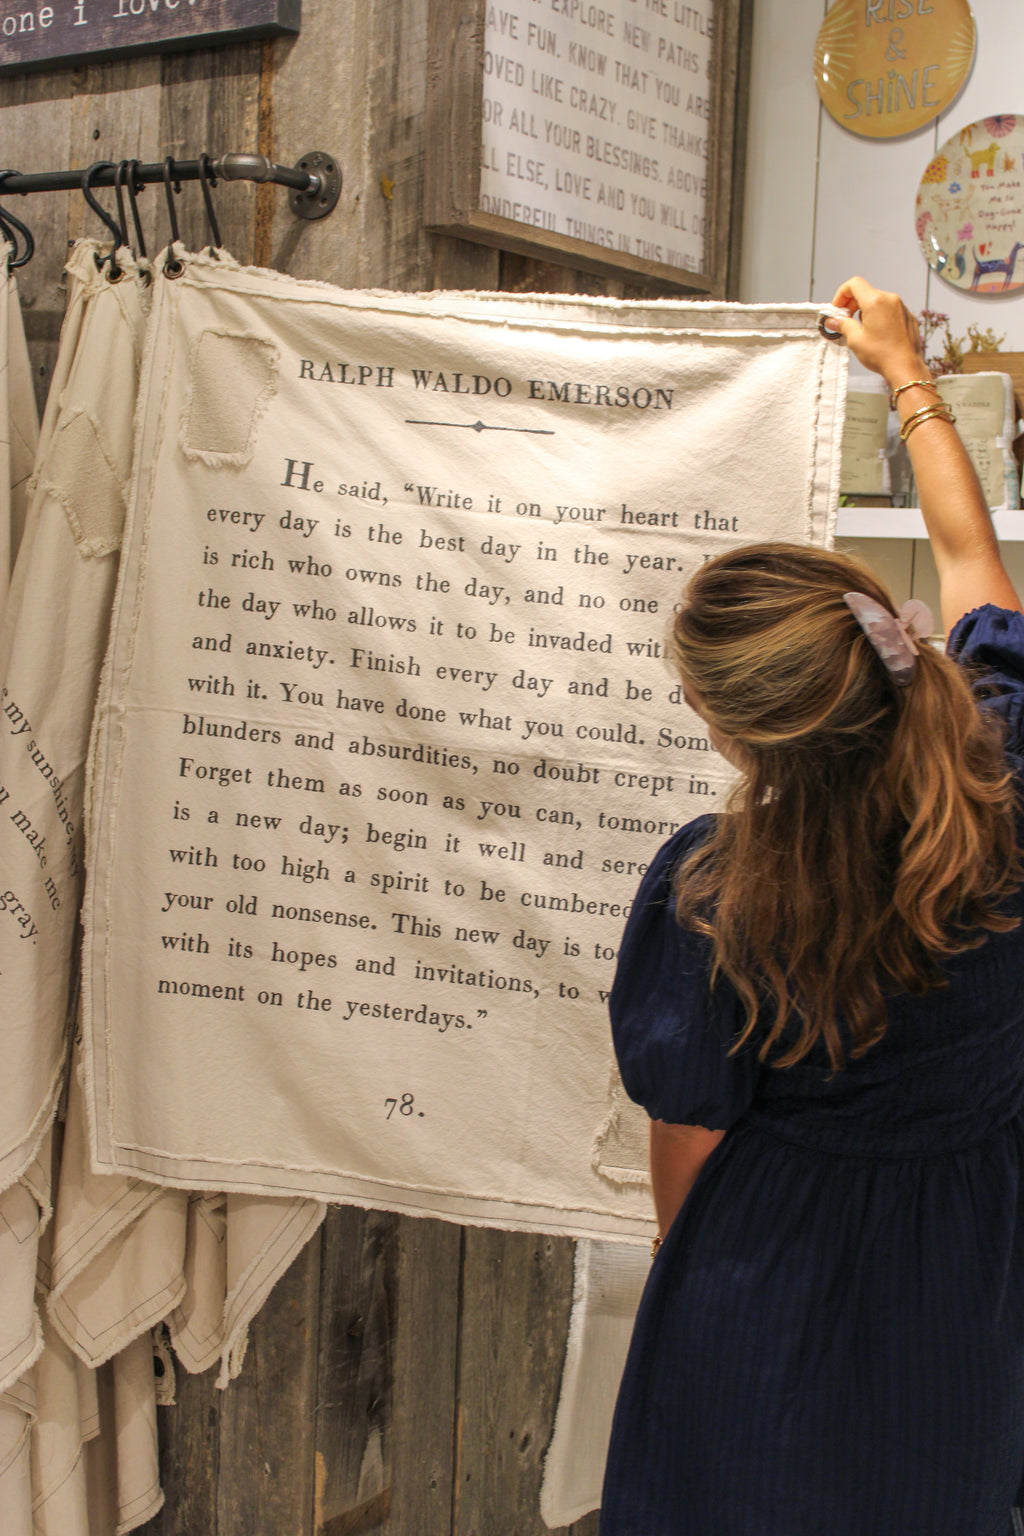 one i love.
THE LITTLE
EXPLORE NEW PATHS
AVE FUN. KNOW THAT YOU ARE
OVED LIKE CRAZY. GIVE THANKS
OR ALL YOUR BLESSINGS. ABOVE
LL ELSE, LOVE AND YOU WILL DO
ONDERFUL THINGS IN THIS WORLD
RISE
&
SHINE
You Make
Me So
Dog-Gone
Happy!
RALPH WALDO EMERSON
He said, “Write it on your heart that
every day is the best day in the year.
is rich who owns the day, and no one
the day who allows it to be invaded with
and anxiety. Finish every day and be d
with it. You have done what you could. Some
blunders and absurdities, no doubt crept in.
Forget them as soon as you can, tomorr
is a new day; begin it well and sere
with too high a spirit to be cumbered
your old nonsense. This new day is to
with its hopes and invitations, to w
moment on the yesterdays.”
78.
my sunshine, my
u make me
gray.
SWADDLE